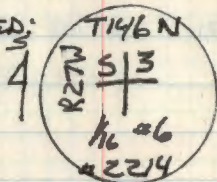 ED:
S
4
T146N
R27W
S 3
1/6 #6
#2214